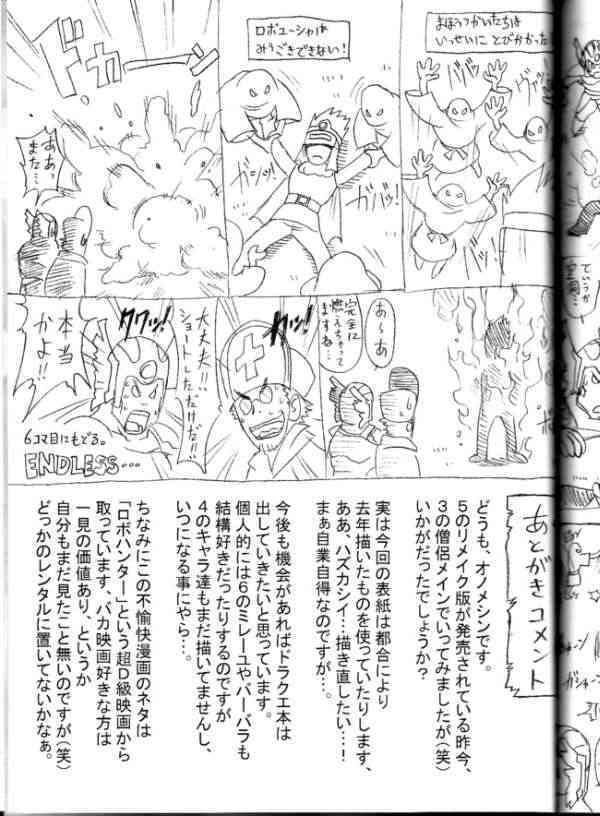 まほうつかいたちは
いっせいに とびかかった!
ロボユーシャは
みうごきできない!
ガシッ!
ガバッ!
ドカーン
ああっ
また…
あ〜あ
完全に
燃えちゃって
ますね…
クワッ!
大丈夫!!
ショートしただけだ!!
クワッ!
本当
かよ!!
6コマ目にもどる。
ENDLESS…
あとがきコメント
どうも、オノメシンです。
5のリメイク版が発売されている昨今、
3の僧侶メインでいってみましたが(笑)
いかがだったでしょうか?
実は今回の表紙は都合により
去年描いたものを使っていたりします、
ああ、ハズカシイ…描き直したい…!
まぁ自業自得なのですが…。
今後も機会があればドラクエ本は
出していきたいと思っています。
個人的には6のミレーユやバーバラも
結構好きだったりするのですが
4のキャラ達もまだ描いてませんし、
いつになる事にやら…。
ちなみにこの不愉快漫画のネタは
「ロボハンター」という超D級映画から
取っています、バカ映画好きな方は
一見の価値あり、というか
自分もまだ見たこと無いのですが(笑)
どっかのレンタルに置いてないかなぁ。
ていうか